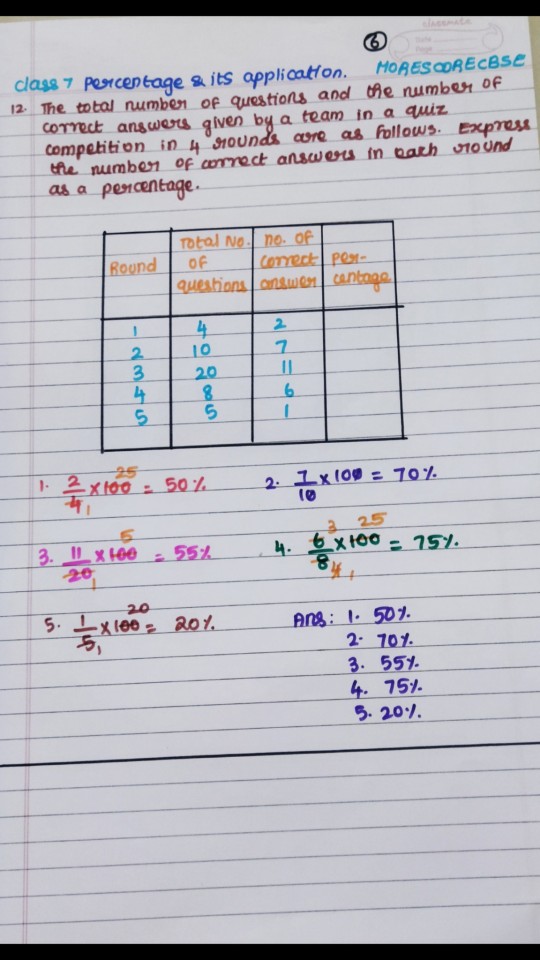 classmate
Date
Page
6
class 7 Percentage & its application. MORESCORECBSE
12. The total number of questions and the number of
correct answers given by a team in a quiz
competition in 4 rounds are as follows. Express
the number of correct answers in each round
as a percentage.
Round | Total No. of questions | no. of correct answer | Per-centage
1 4 2
2 10 7
3 20 11
4 8 6
5 5 1
1. 2/4 × 100 = 50% 25 1
2. 7/10 × 100 = 70%
3. 11/20 × 100 = 55% 5 1
4. 6/8 × 100 = 75% 3 25 4 1
5. 1/5 × 100 = 20% 20 1
Ans: 1. 50%
2. 70%
3. 55%
4. 75%
5. 20%